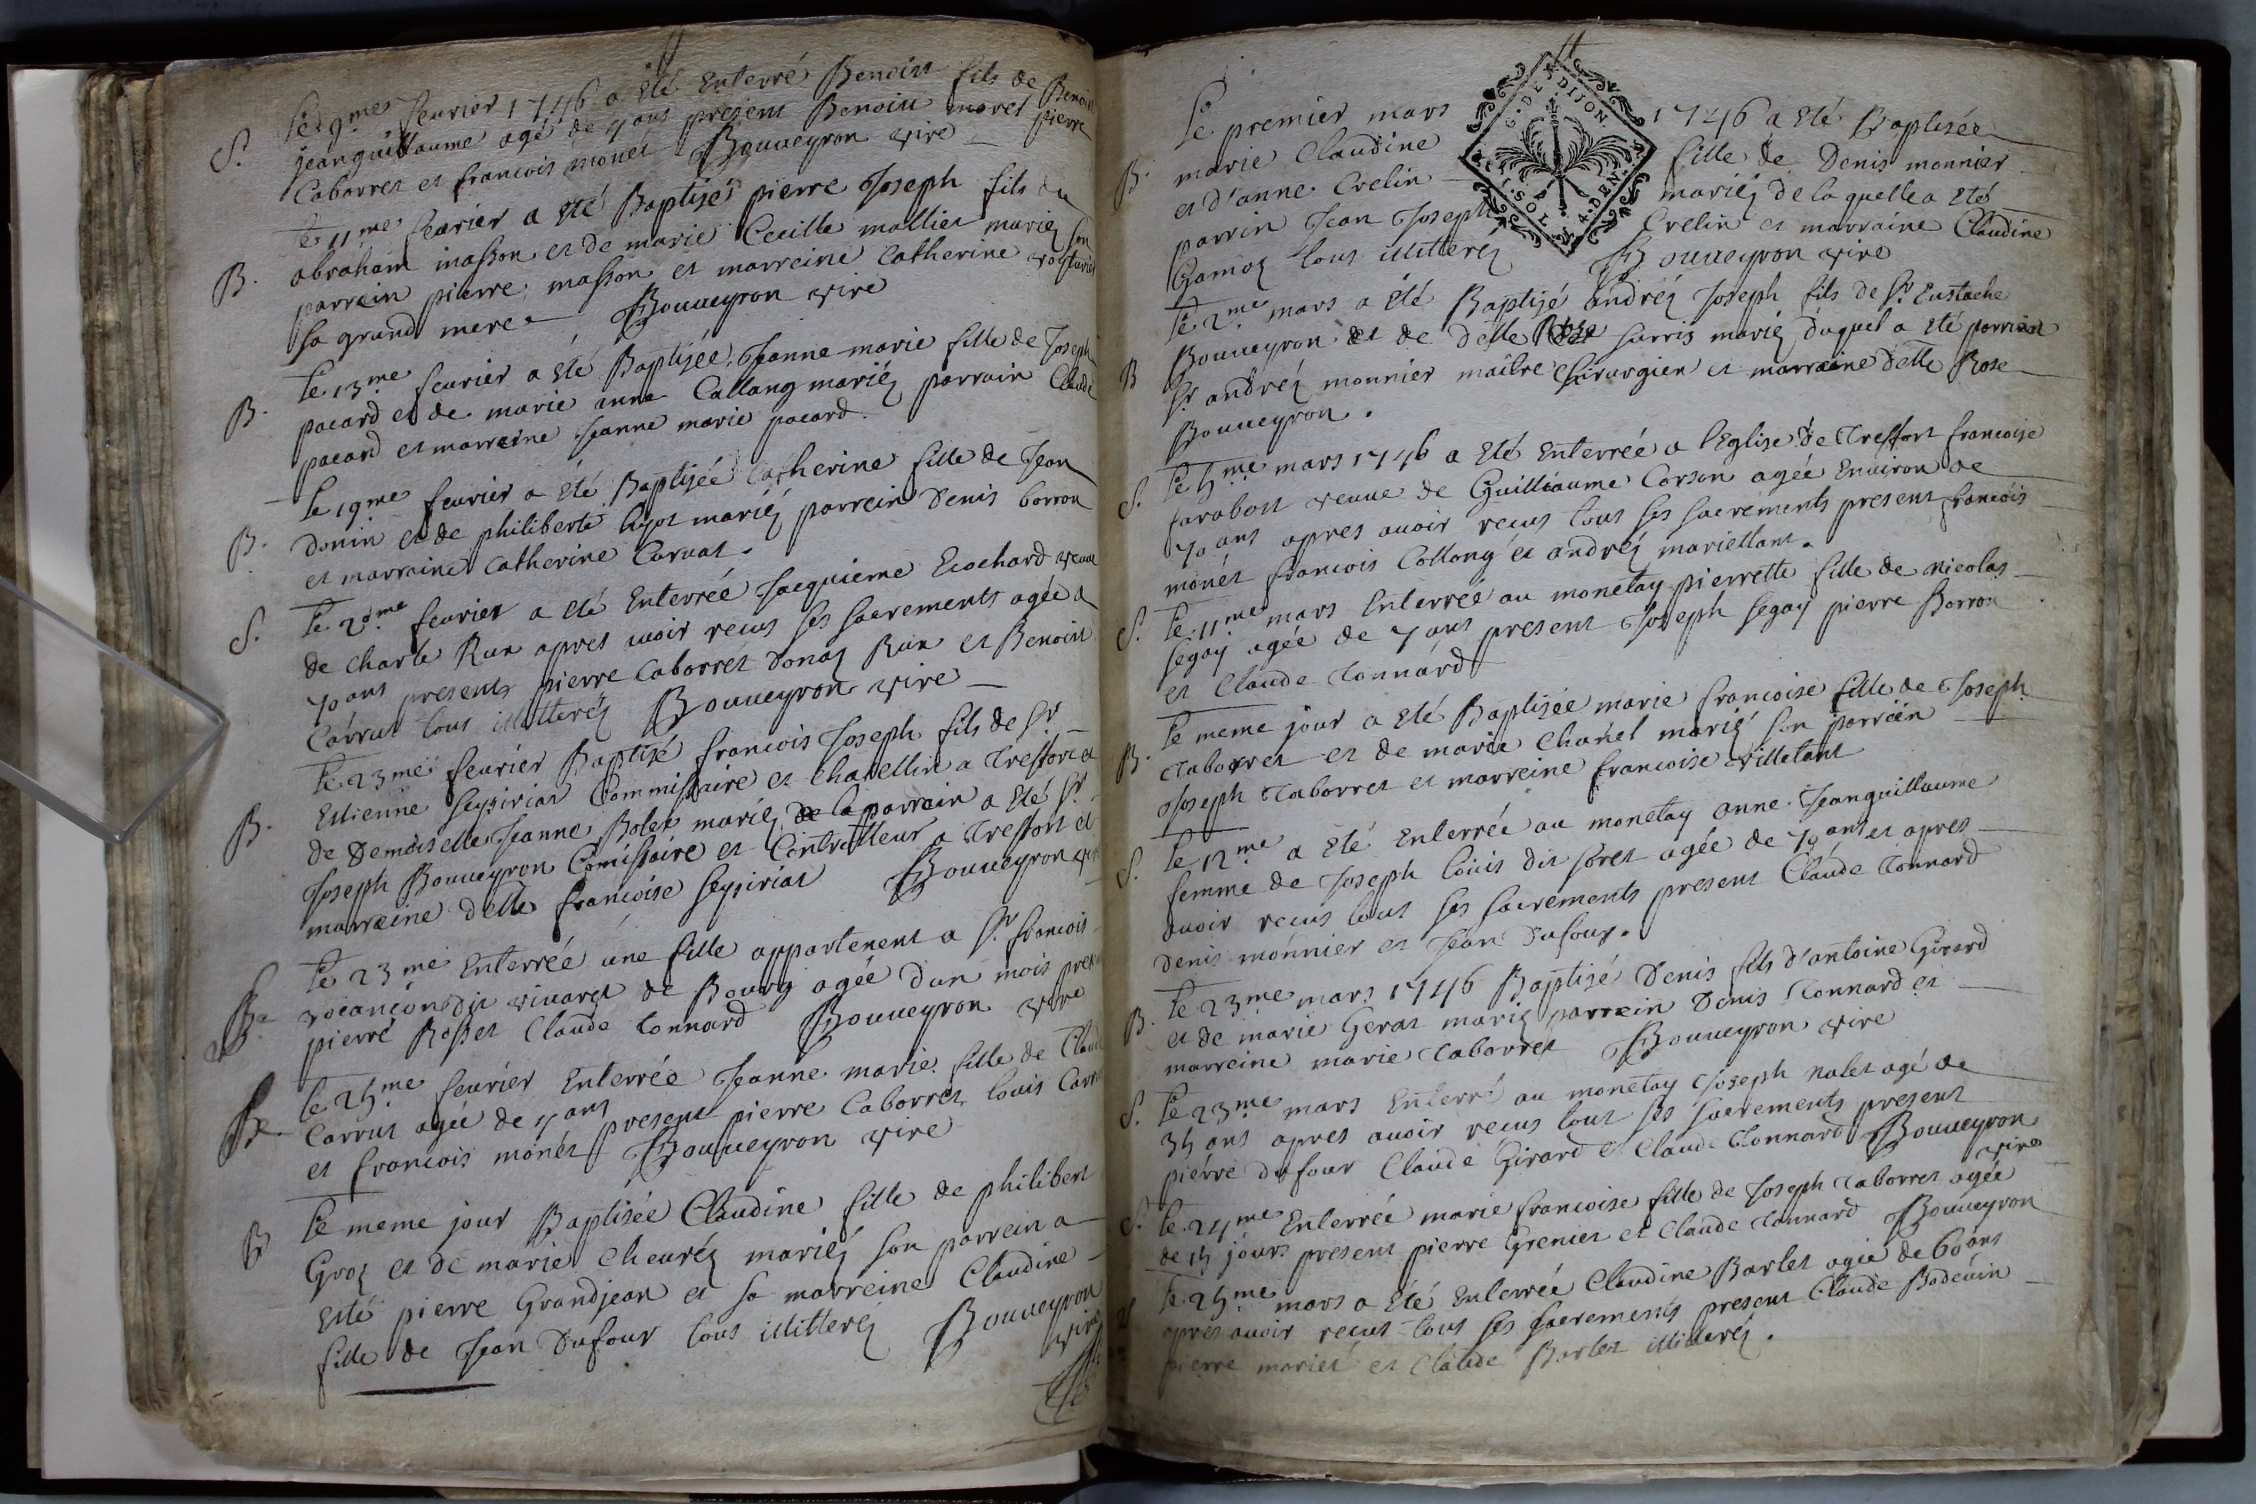 S. Le 9.me feurier 1746 a Eté Enterré Benoist fils de Benoit
jeanguillaume agé de 7 ans present Benoist moret pierre
Caborret et francois monet Bouueyron vire
B. Le 11me feurier a Eté Baptisé pierre Joseph fils du
abraham masson et de marie Cecille mallier mariez son
parrein pierre masson et marreine Catherine
sa grand mere Bouueyron vire
B. Le 13me feurier a Eté Baptisée Jeanne marie fille de Joseph
pacard et de marie anne Callang mariéz parrain Claude
pacard et marreine Jeanne marie pacard.
B. Le 19me feurier a Eté Baptisée Catherine fille de Jean
Donin et de philiberte mariéz parrein Denis borron
et marraine Catherine Caruat.
S. Le 20me feurier a Eté Enterrée Jacquieme Ecochard veuue
de charle Rux apres auoir recus ses sacrements agée de
70 ans presents pierre Caborret Rux et Benoist
Carrut tous illitteréz Bouueyron vire
B. Le 23me feurier Baptisé francois Joseph fils de Sr
Estienne seysiriat Commissaire et chatellin a Treffort et
de Demoiselle Jeanne mariéz de la parrain a Eté Sr
Joseph Bouueyron Comissaire et Controlleur a Treffort et
marreine Delle francoise seysiriat Bouueyron vire
Le 23me Enterrée une fille appartenent a Sr francois
dit viuaret de Bourg agée dun mois present
pierre Rosset Claude Tonnard Bouueyron vire
Le 25me feurier Enterrée Jeanne marie fille de Claude
Carrut agée de 7 ans present pierre Caborret louis Carrut
et francois monet Bouueyron vire
B Le meme jour Baptisée Claudine fille de philibert
Groz et de marie cheuréz mariéz son parrein a
Eté pierre Grandjean et sa marreine Claudine
fille de Jean Dufour tous illitteréz Bouueyron
vire
G. DE DIJON
Le premier mars 1746 a Eté Baptisée
B. marie Claudine fille de Denis monnier
et d'anne Crelin mariéz de laquelle a Eté
parrin Jean Joseph Crelin et marraine Claudine
Gamoz tous illitteréz Bouueyron vire
Le 2me mars a Eté Baptisé andréz Joseph fils de Sr Eustache
B Bouueyron et de Delle Rose sarris mariéz duquel a Eté parrain
Sr andréz monnier maitre Chirurgien et marraine Delle Rose
Bouueyron.
S. Le 5me mars 1746 a Eté Enterrée a l'Eglise de Treffort francoise
farabost veuue de Guilliaume Corson agée Enuiron de
70 ans apres auoir recus tous ses sacrements present francois
monet francois Collang et andréz mariettant.
S. Le 11me mars Enterrée au monetay pierrette fille de nicolas
segay agée de 7 ans present Joseph segay pierre Borron
et Claude Tonnard
Le meme jour a Eté Baptisée marie francoise fille de Joseph
B. Taborret et de marie Chanel mariéz son parrein
Joseph Taborret et marreine francoise villetant
S. Le 12me a Eté Enterrée au monetay anne Jeanguillaume
femme de Joseph louis dit foret agée de 70 ans et apres
auoir recus tous ses sacrements present Claude Tonnard
Denis monnier et Jean Dufour.
B. Le 23me mars 1746 Baptisé Denis fils d'antoine Girard
et de marie Gerat mariéz parrein Denis Tonnard et
marreine marie Taborret Bouueyron vire
S. Le 23me mars Enterré au monetay Joseph nalet agé de
35 ans apres auoir recus tout ses sacrements present
pierre dufour Claude Girard et Claude Tonnard Bouueyron
vire
S. Le 24me Enterrée marie francoise fille de Joseph Taborret agée
de 15 jours present pierre Grenier et Claude Tonnard Bouueyron
Le 25me mars a Eté Enterrée Claudine Barlet agée de 60 ans
apres auoir recus tous ses sacrements present Claude Bodeuin
pierre mariet et Claude Barlet illiteréz.